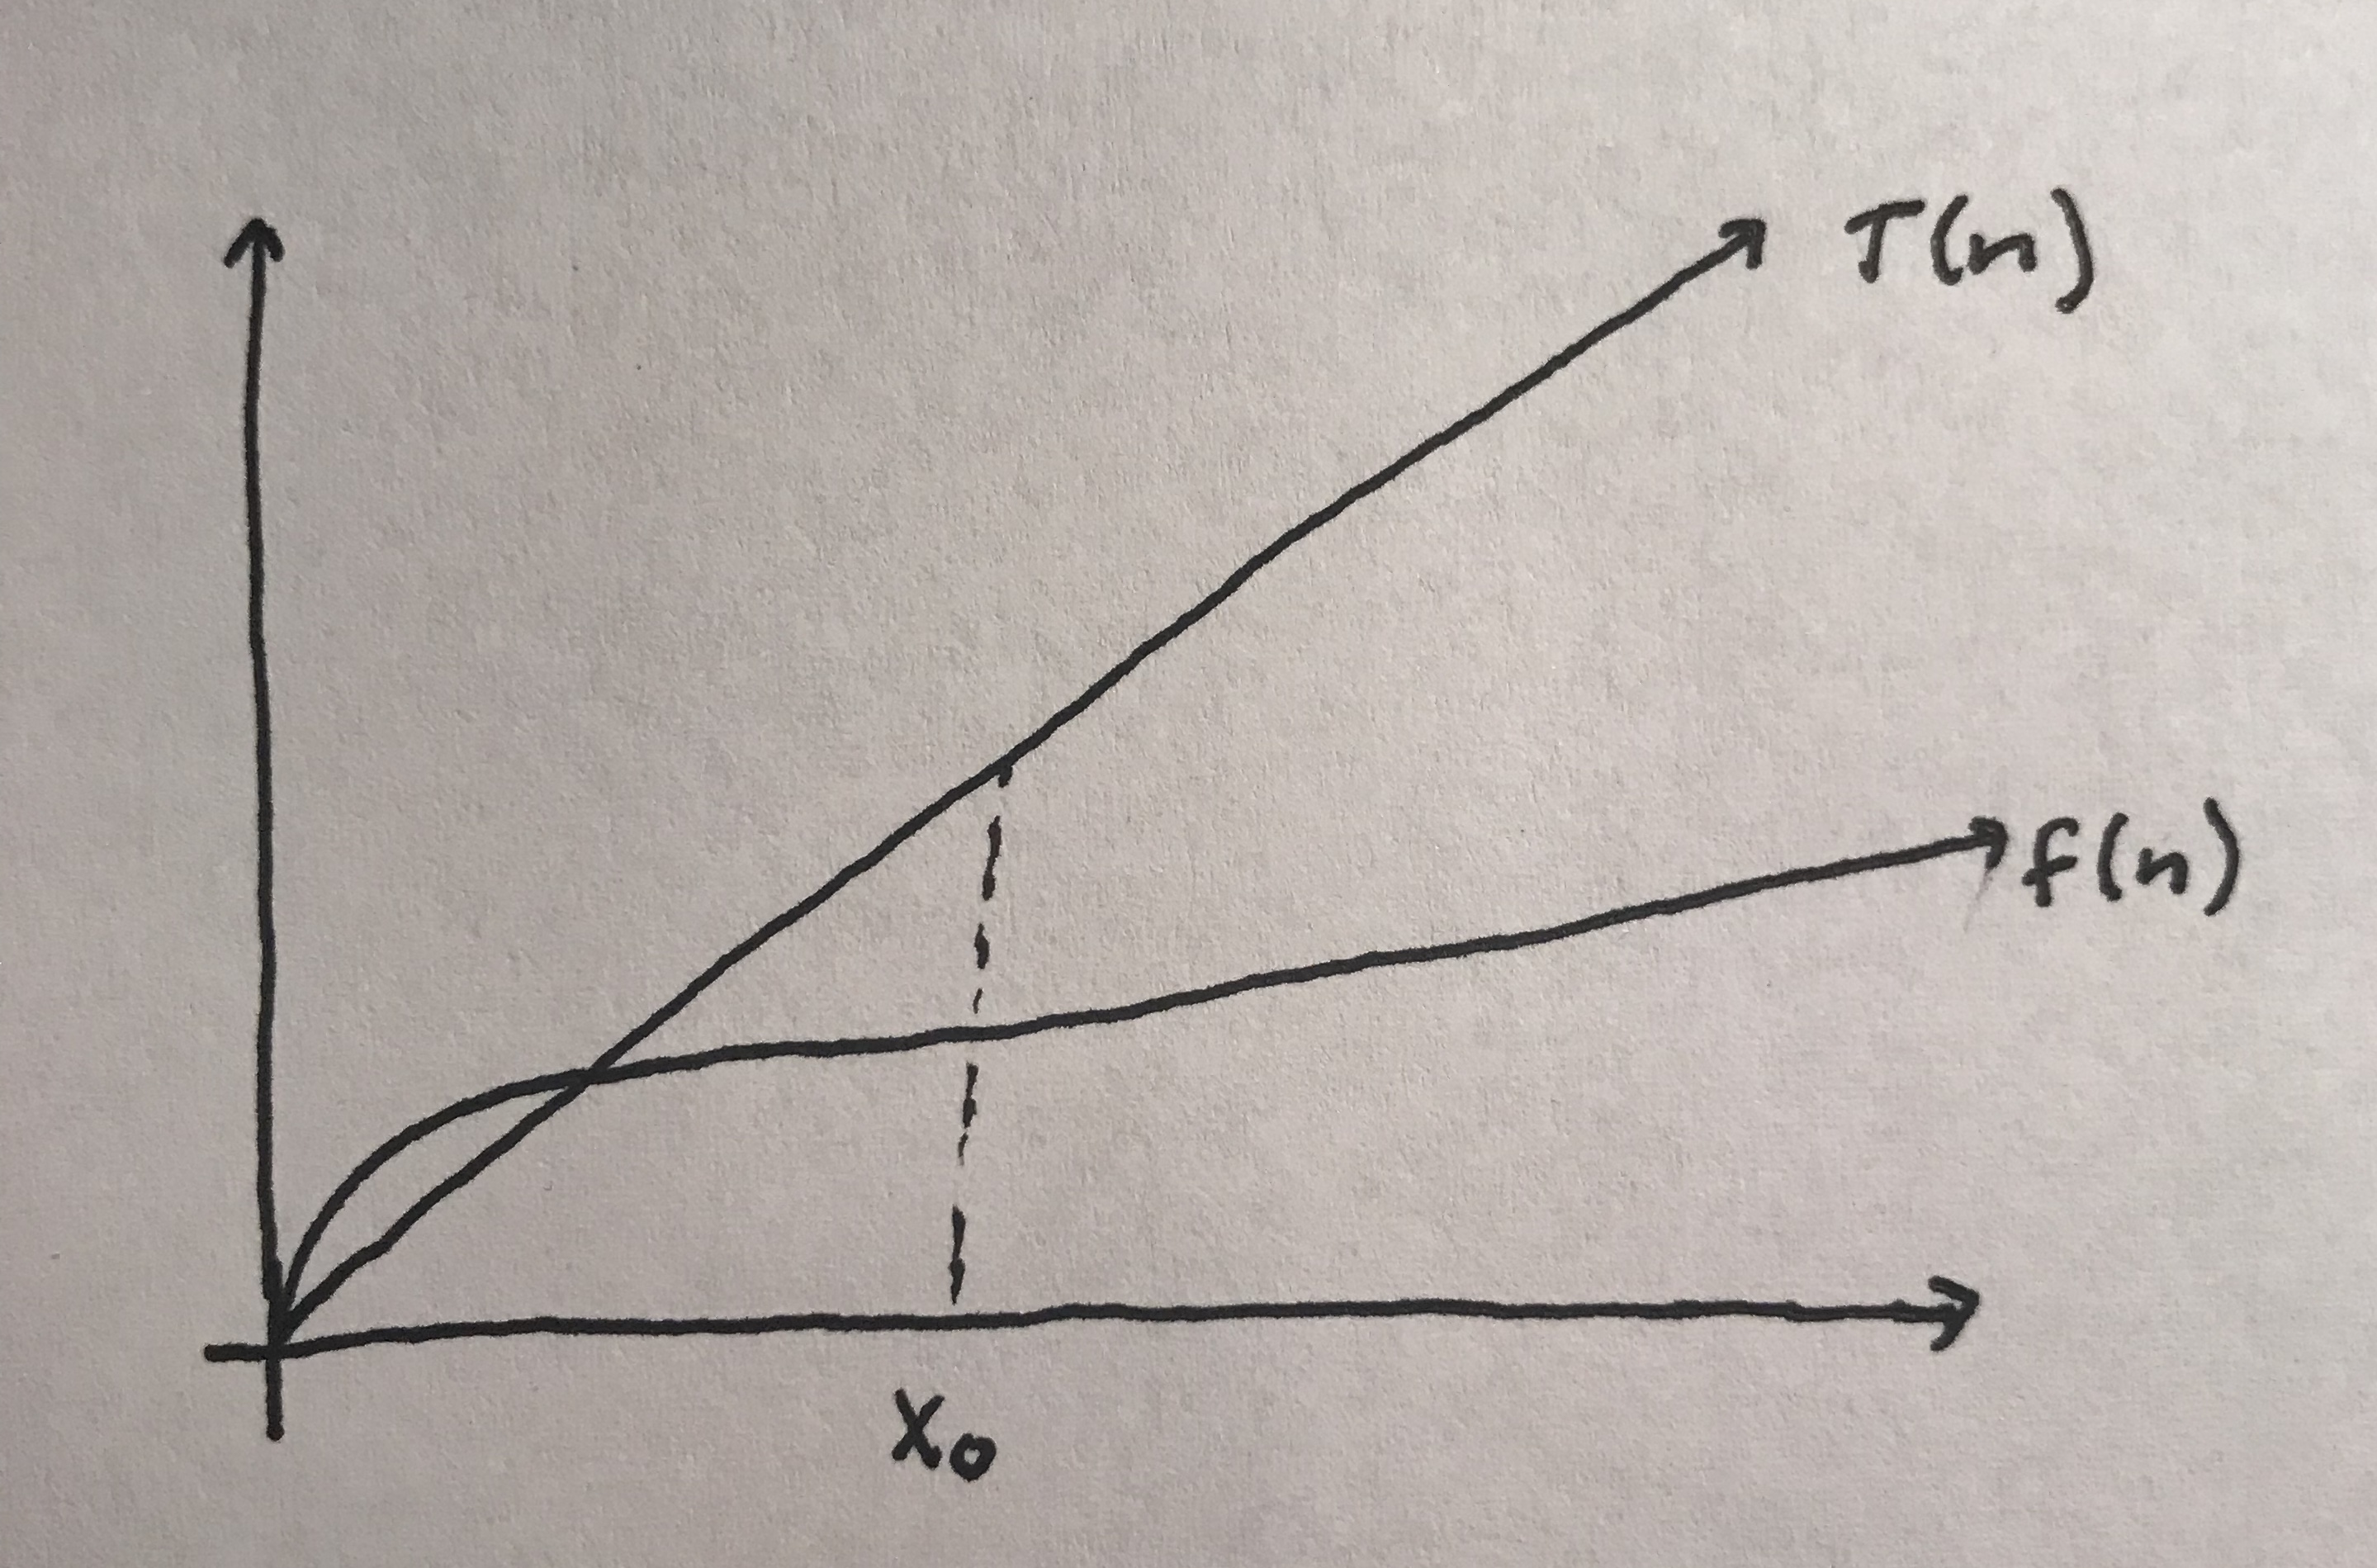 T(n)
f(n)
X₀